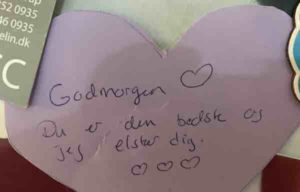 52 0935
46 0935
elin.dk
C
Godmorgen ♡
Du er den bedste og
jeg elsker dig.
♡♡♡